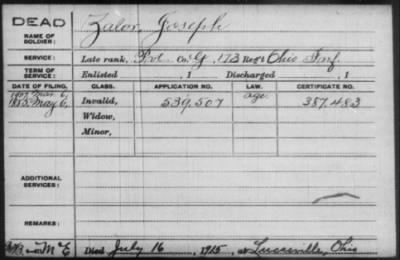 DEAD
NAME OF SOLDIER:
Zalor Joseph
SERVICE:
Late rank, Pvt. Co. G, 173 Reg't Ohio Inf.
TERM OF SERVICE:
Enlisted , 1 Discharged , 1
DATE OF FILING. CLASS. APPLICATION NO. LAW. CERTIFICATE NO.
1907 Mar. 6, age
1885 May 6, Invalid, 539,507 387,483
Widow,
Minor,
ADDITIONAL SERVICES:
REMARKS:
Died July 16, 1915, at Lucasville, Ohio